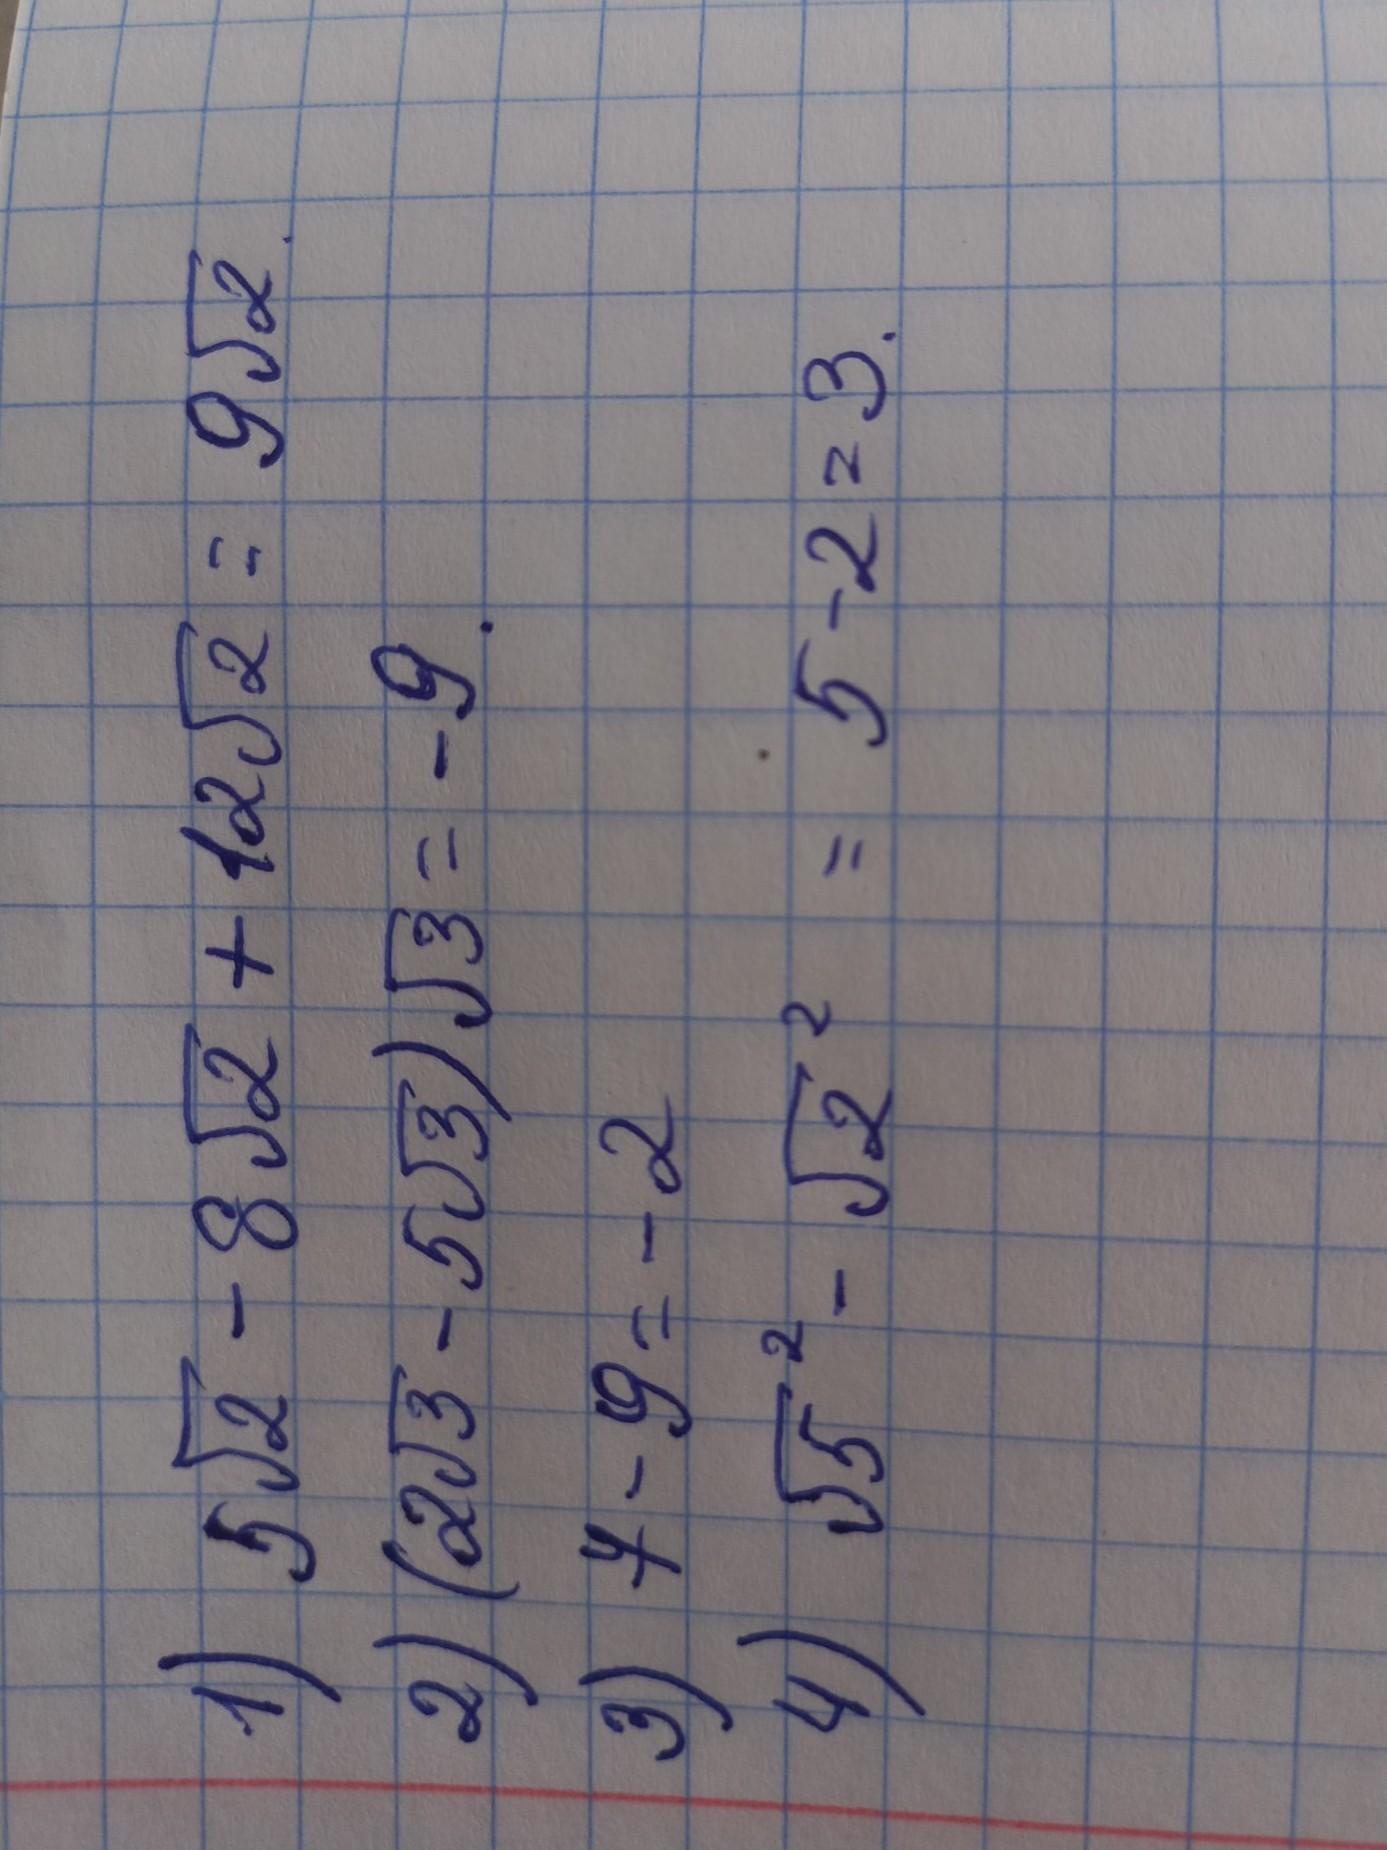 1) 5√2 - 8√2 + 12√2 = 9√2.
2) (2√3 - 5√3)√3 = -9.
3) 7 - 9 = -2
4) √5² - √2² = 5 - 2 = 3.